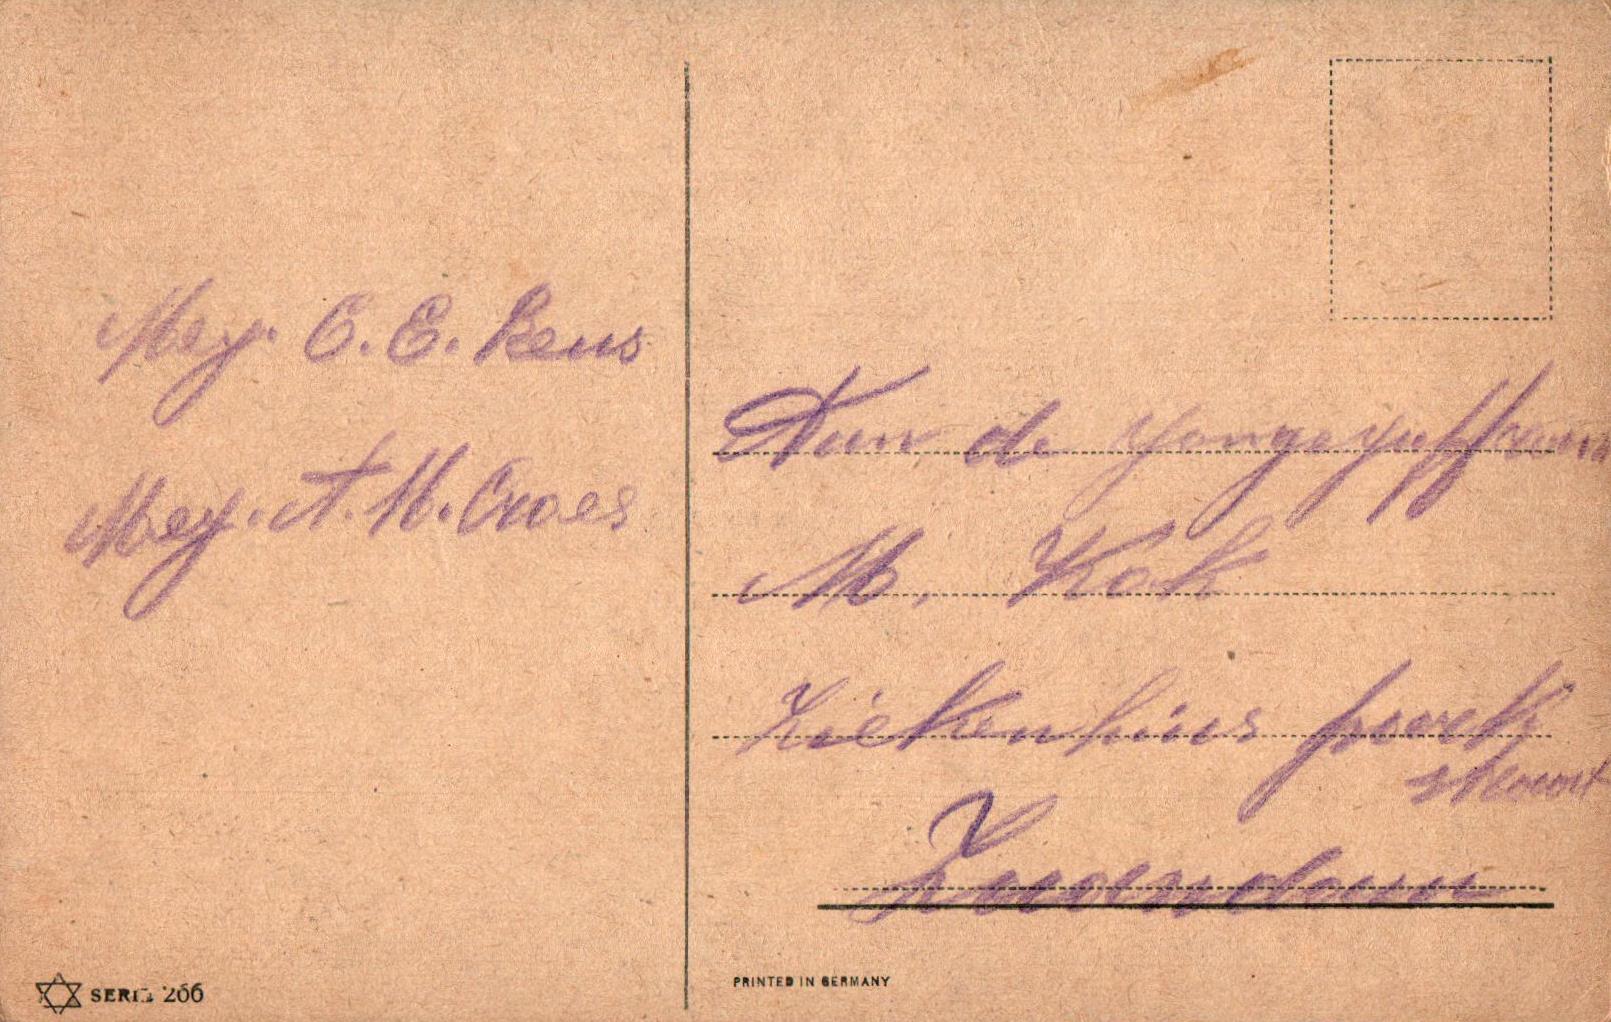 Mej. C. E. Beus
Mej. A. M. Croes
Aan de Jongejuffrouw
M. Kok
Ziekenhuis park
straat
Zaandam
SERIE 266
PRINTED IN GERMANY